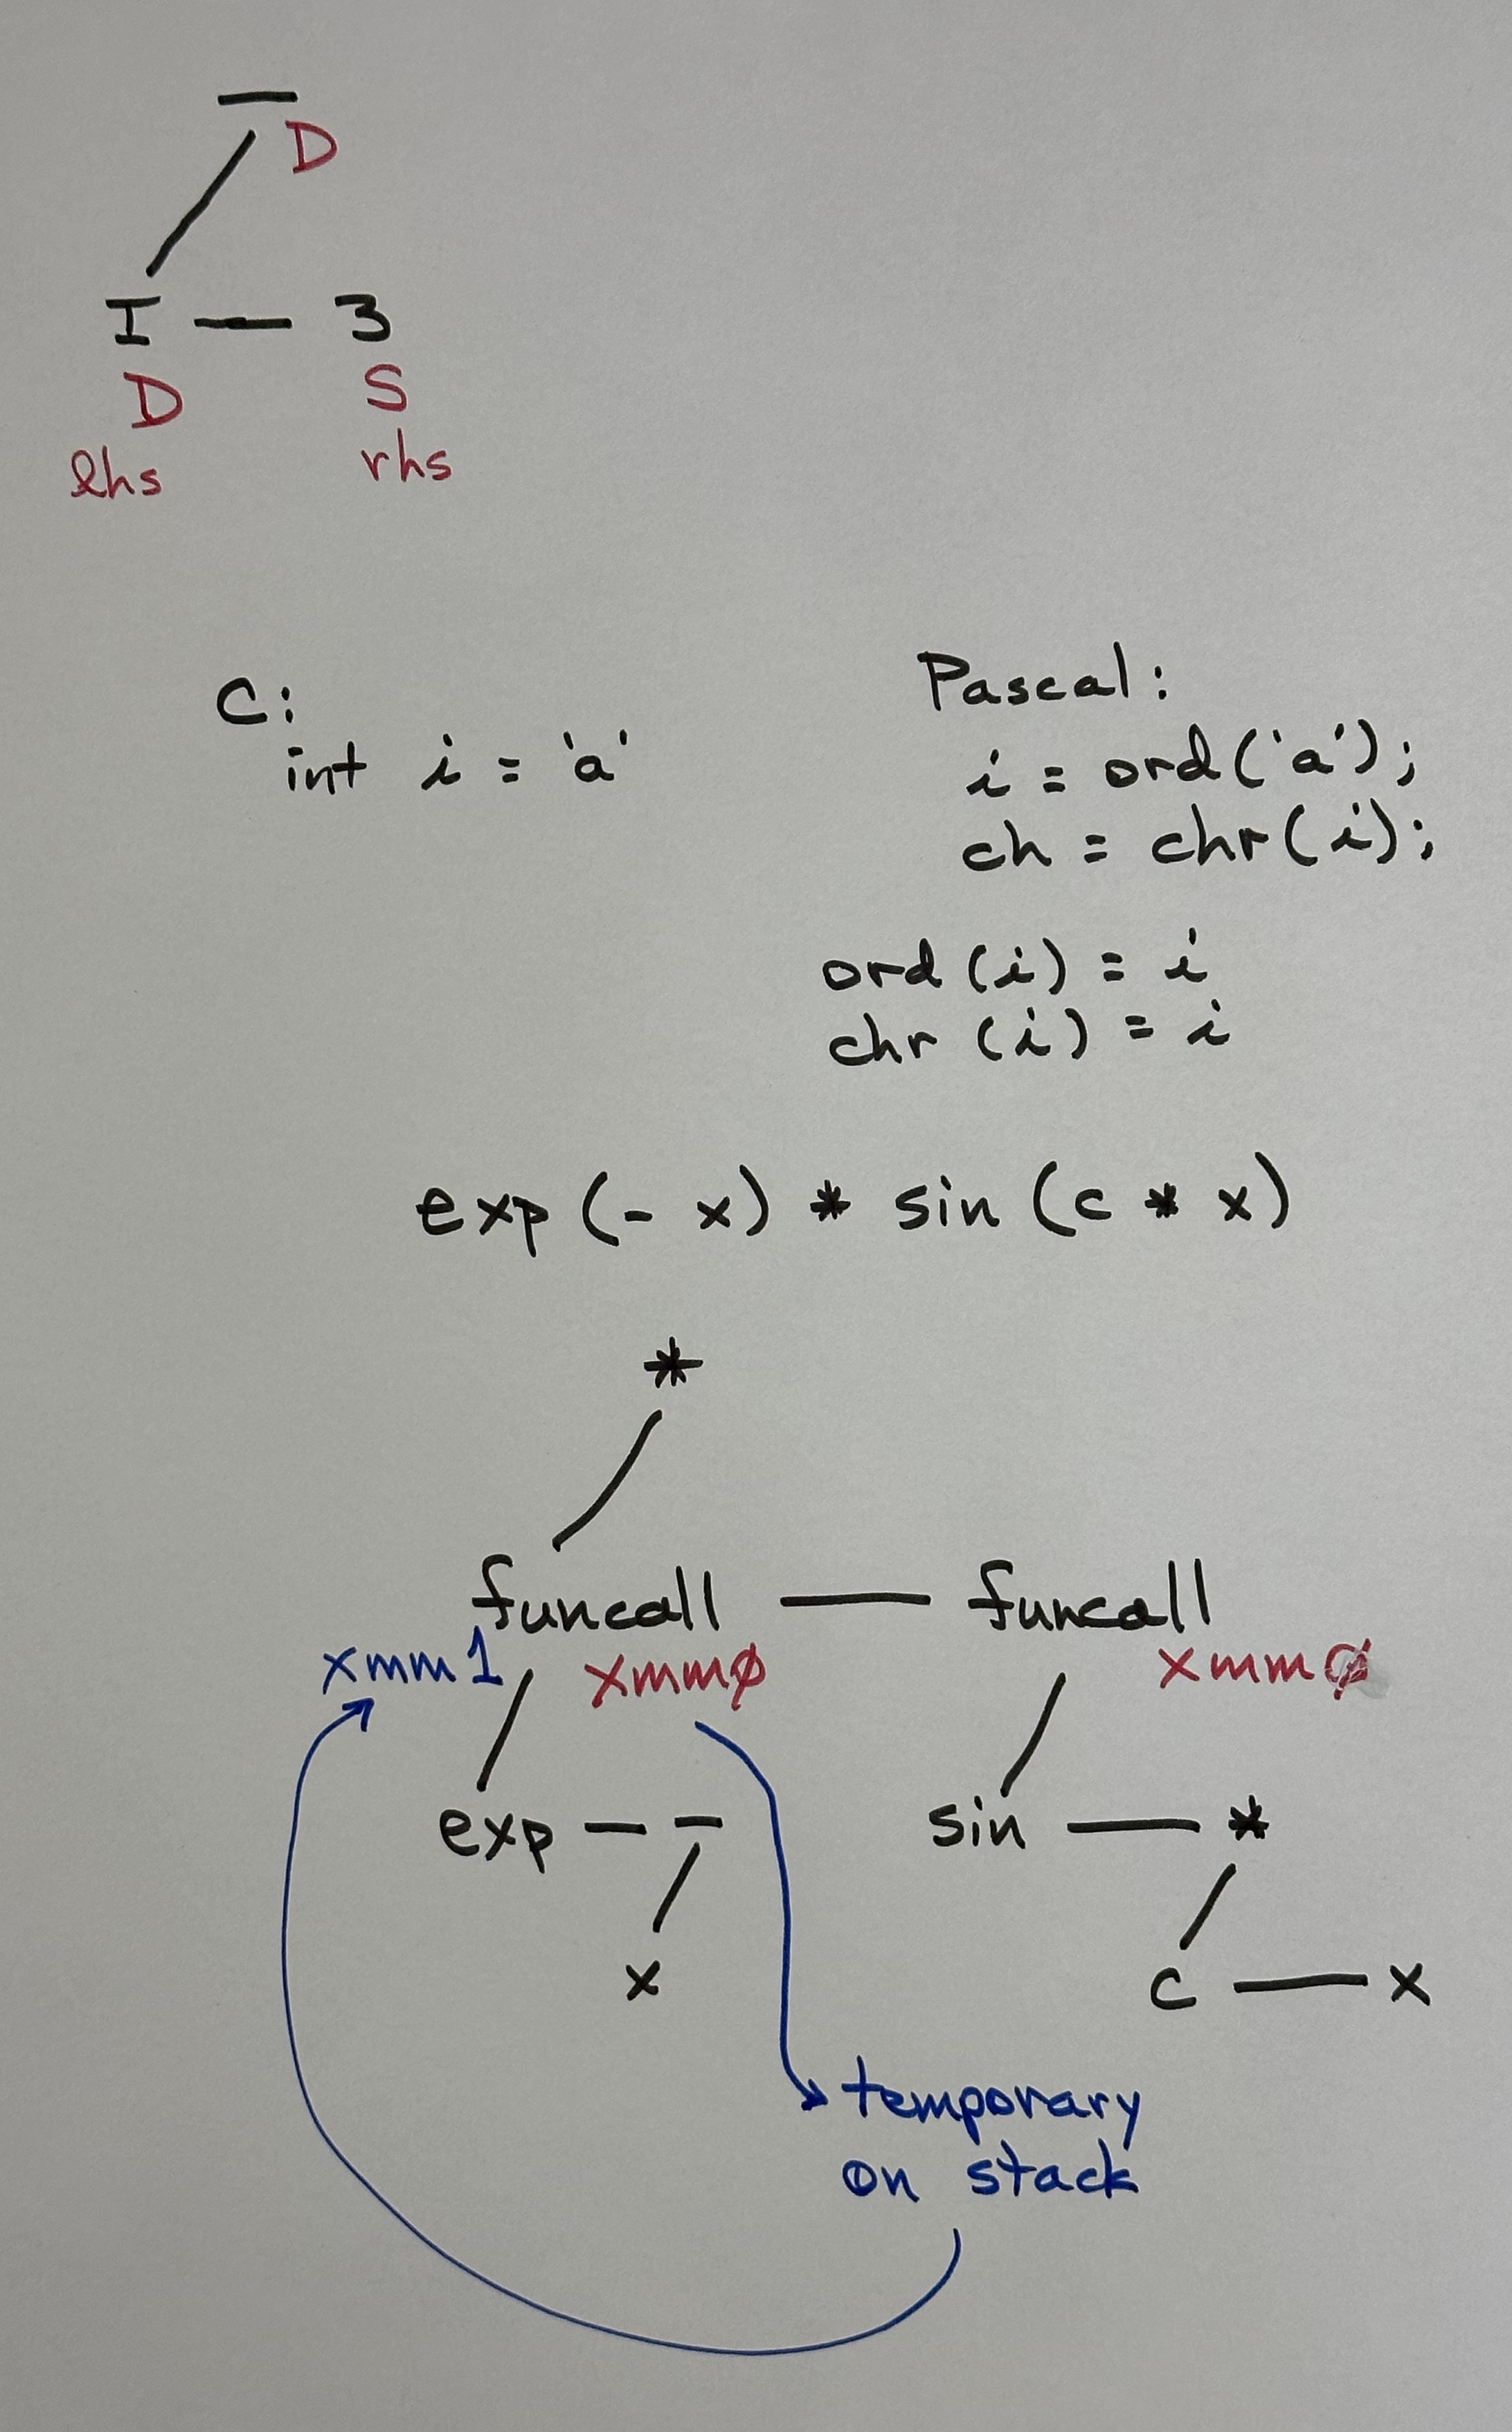 —
D
I — 3
D S
lhs rhs
C:
int i = 'a'
Pascal:
i = ord('a');
ch = chr(i);
ord (i) = i
chr (i) = i
exp (- x) * sin (c * x)
*
funcall — funcall
xmm1 xmmø xmmø
exp — – sin — *
x c — x
temporary
on stack